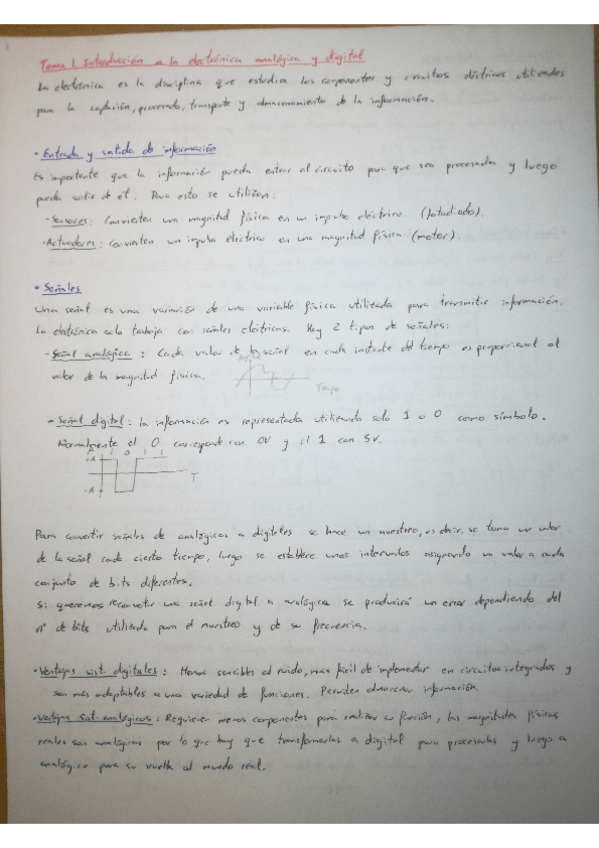 Tema 1. Introducción a la electrónica analógica y digital
La electrónica es la disciplina que estudia los componentes y circuitos eléctricos utilizados
para la captación, procesado, transporte y almacenamiento de la información.
• Entrada y salida de información
Es importante que la información pueda entrar al circuito para que sea procesada y luego
pueda salir de él. Para esto se utilizan:
- Sensores: Convierten una magnitud física en un impulso eléctrico. (fotodiodo).
- Actuadores: Convierten un impulso eléctrico en una magnitud física (motor).
• Señales
Una señal es una variación de una variable física utilizada para transmitir información.
La electrónica solo trabaja con señales eléctricas. Hay 2 tipos de señales:
- Señal analógica: Cada valor de la señal en cada instante del tiempo es proporcional al
valor de la magnitud física.
Tiempo
- Señal digital: la información es representada utilizando solo 1 o 0 como símbolo.
Normalmente el 0 corresponde con 0V y el 1 con 5V.
1 0 1 1
A
-A
T
Para convertir señales de analógicas a digitales se hace un muestreo, es decir, se toma un valor
de la señal cada cierto tiempo, luego se establece unos intervalos asignando un valor a cada
conjunto de bits diferentes.
Si queremos reconvertir una señal digital a analógica se producirá un error dependiendo del
nº de bits utilizado para el muestreo y de su frecuencia.
• Ventajas sist. digitales: Menos sensibles al ruido, más fácil de implementar en circuitos integrados y
son más adaptables a una variedad de funciones. Permiten almacenar información.
• Ventajas sist. analógicos: Requieren menos componentes para realizar su función, las magnitudes físicas
reales son analógicas por lo que hay que transformarlas a digital para procesarlas y luego a
analógico para su vuelta al mundo real.